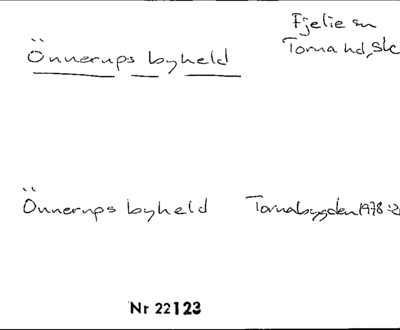 Fjelie sn
Önnerups byheld
Torna hd, Sk
Önnerups byheld Tornabygden 1978:2
Nr 22123